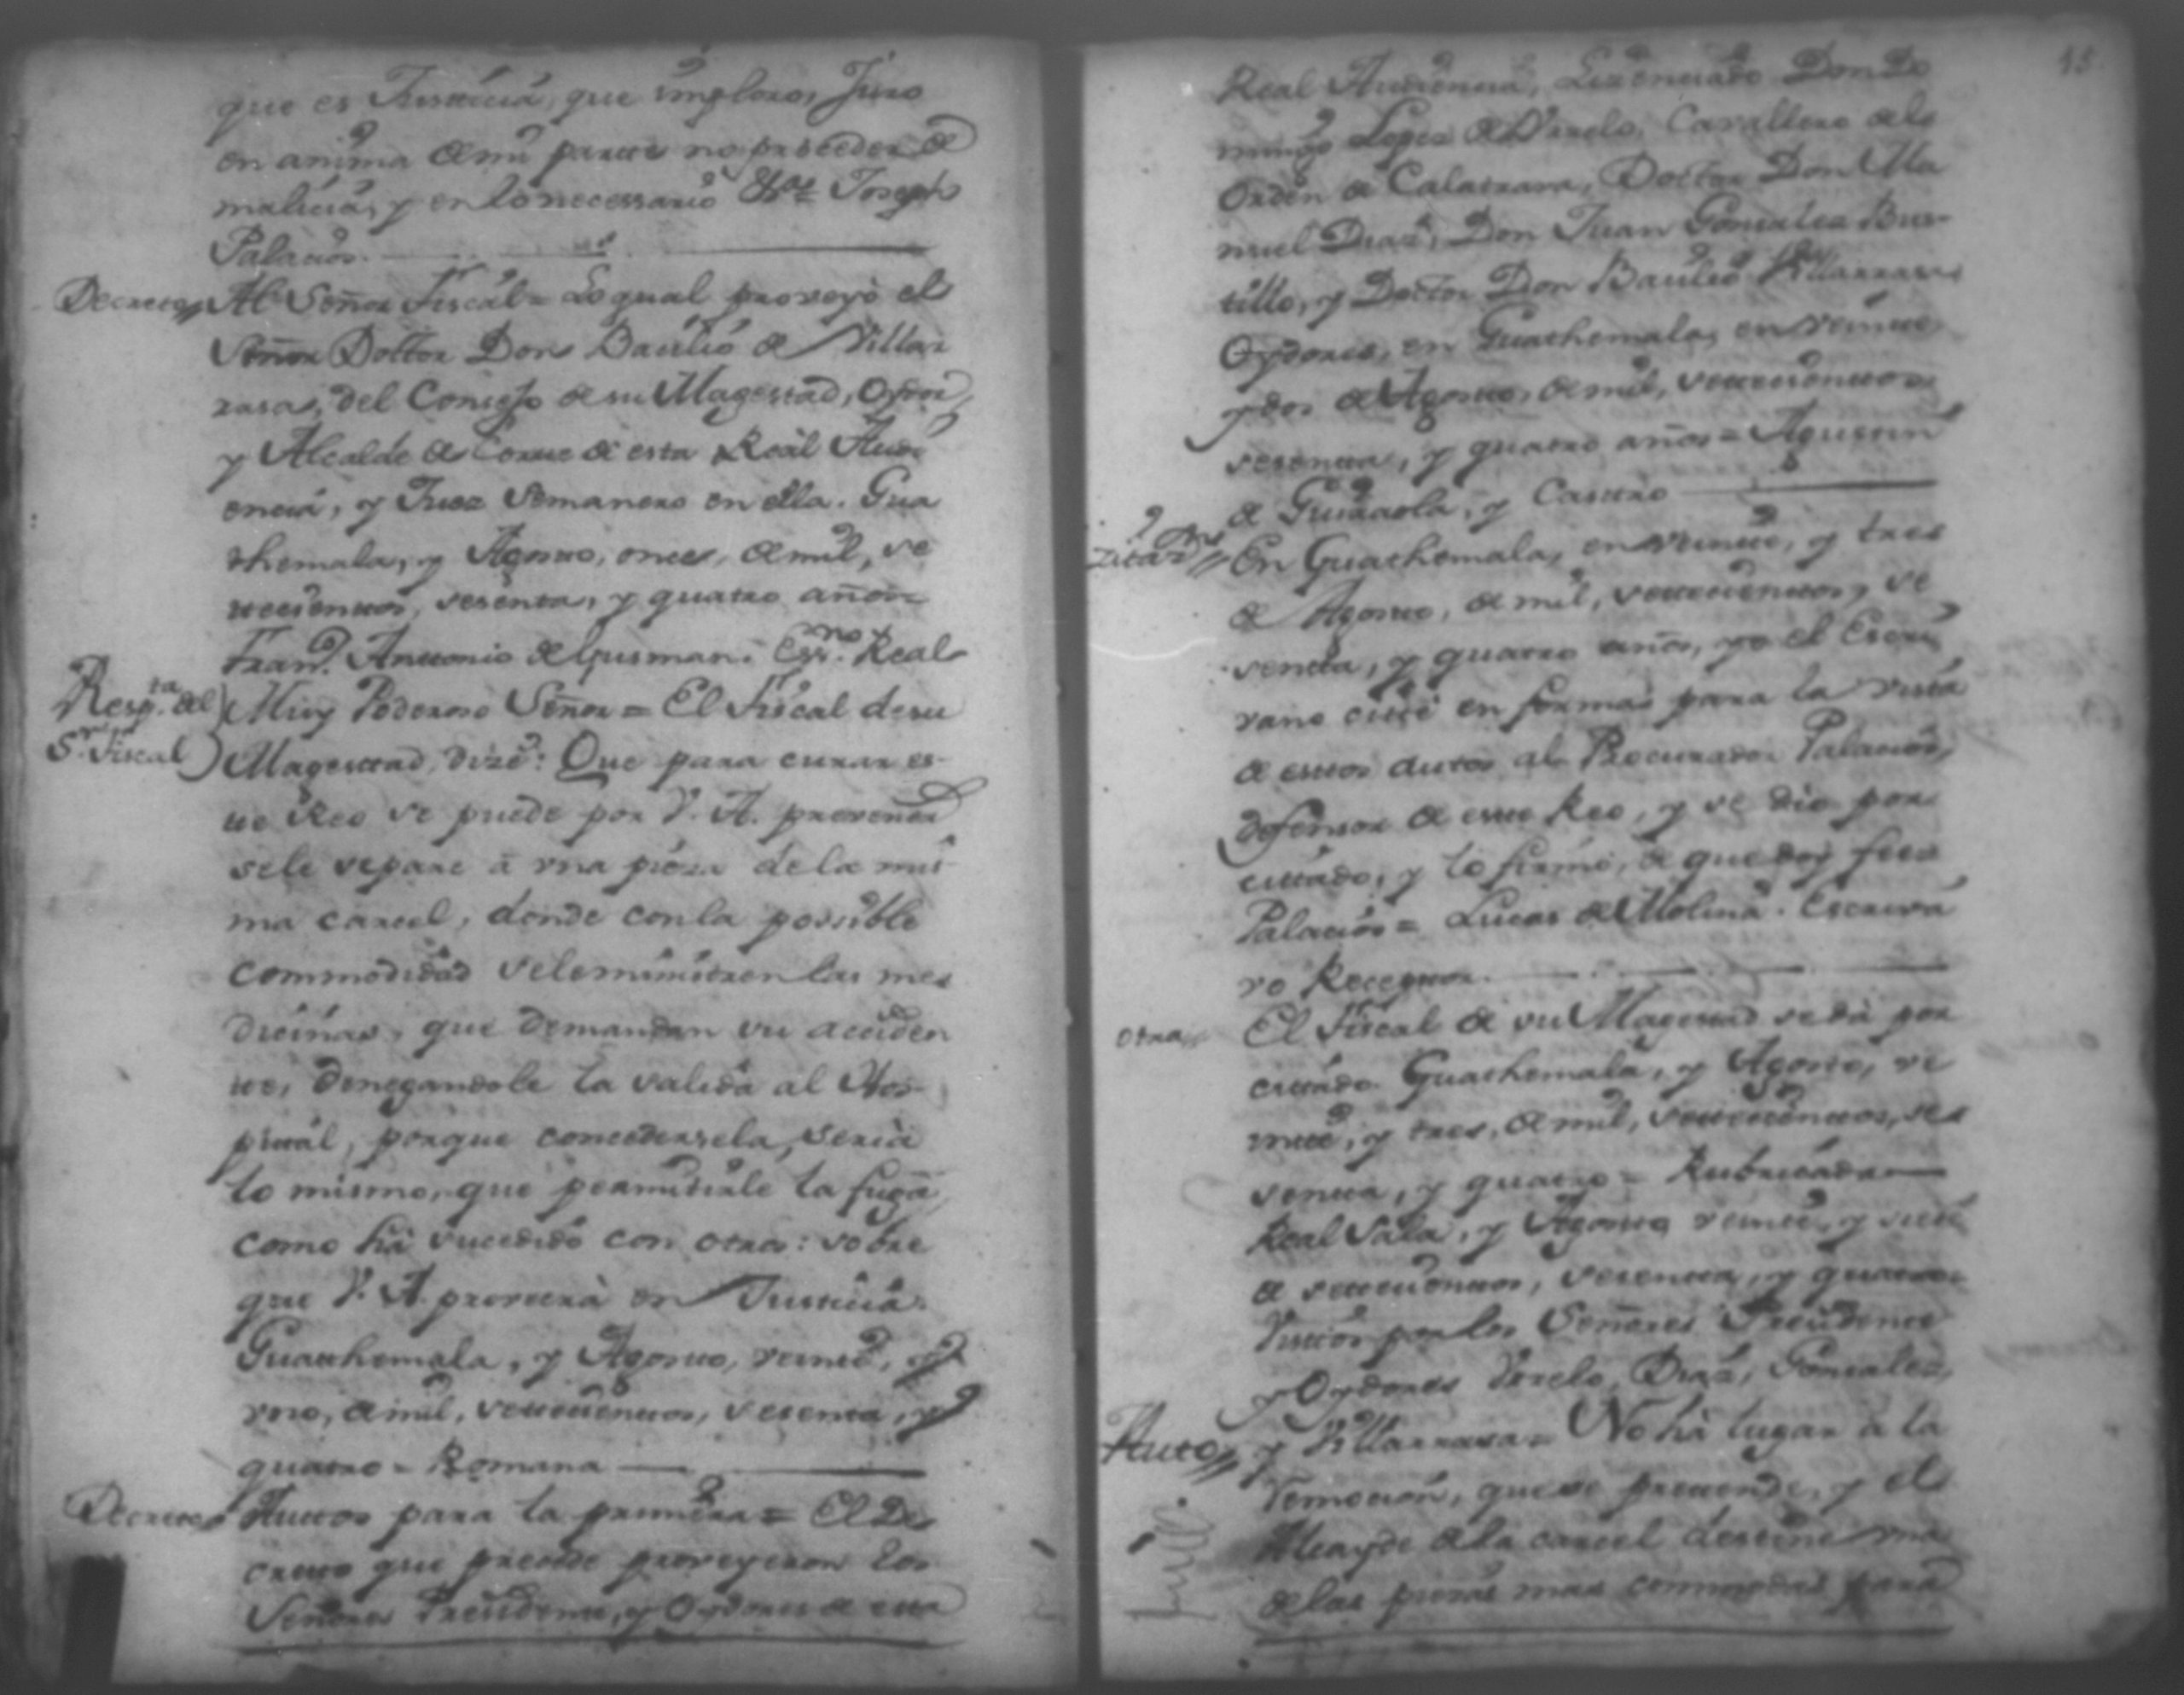 que es Justicia, que imploro, Juro
en anima de mi parte no proceder de
malicia, y en lo necessario &.ª Joseph
Palacios.
Decreto Al Señor Fiscal = Lo qual proveyò el
Señor Doctor Don Basilio de Villar
rasa, del Consejo de su Magestad, Oydor,
y Alcalde de Corte de esta Real Audi
encia, y Juez Semanero en ella. Gua
themala, y Agosto, once, de mil, se
tecientos, sesenta, y quatro años =
Fran.co Antonio de Gusman. Ess.no Real
Resp.ta del S.r Fiscal Muy Poderoso Señor = El Fiscal de su
Magestad, dize: Que para curar es-
te Reo se puede por V. A. prevenir
se le separe à una pieza de la mis-
ma carcel, donde con la possible
commodidad se le ministren las me
dicinas, que demandan su acciden
te, denegandole la salida al Hos-
pital, porque concedersela, seria
lo mismo, que permitirle la fuga,
como hà sucedido con otros: sobre
que V. A. proveerà en Justicia.
Guathemala, y Agosto, veinte, y
uno, de mil, setecientos, sesenta, y
quatro = Romana
Decreto Autos para la primera = El De
creto que precede proveyeron los
Señores Presidente, y Oydores de esta
15
Real Audiencia, Lizenciado Don Do
mingo Lopez de Urrelo, Cavallero de la
Orden de Calatrava, Doctor Don Ma
nuel Diaz, Don Juan Gonzalez Bus-
tillo, y Doctor Don Basilio Villarrasa
Oydores, en Guathemala, en veinte
y dos de Agosto, de mil, setecientos
sesenta, y quatro años = Agustin
de Guiraola, y Castro
Zitaz.on En Guathemala, en veinte, y tres
de Agosto, de mil, setecientos, se
senta, y quatro años, yo el Escri
vano citè en forma para la vista
de estos autos al Procurador Palacios,
defensor de este Reo, y se dio por
citado, y lo firmò, de que doy fee =
Palacios = Lucas de Molina. Escriva
no Receptor.
Otra El Fiscal de su Magestad se dà por
citado. Guathemala, y Agosto, ve
inte, y tres, de mil, setecientos, se
senta, y quatro = Rubricado
Real Sala, y Agosto veinte, y siete
de setecientos, sesenta, y quatro =
Vistos por los Señores Presidente
y Oydores Urrelo, Diaz, Gonzalez,
Auto y Villarrasa = No hà lugar à la
remocion, que se pretende, y el
Alcayde de la carcel destine una
de las piezas mas commodas para